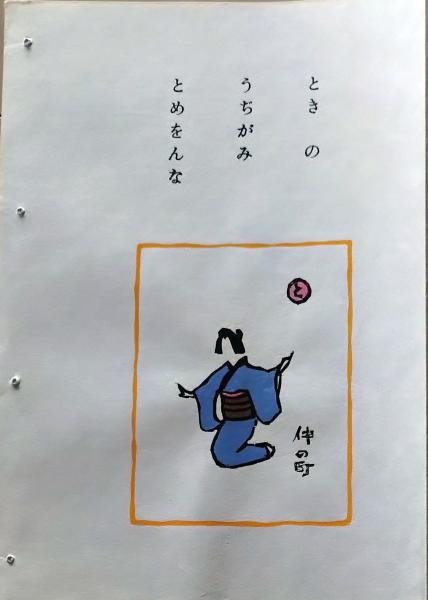 ときの
うぢがみ
とめをんな
と
仲の町